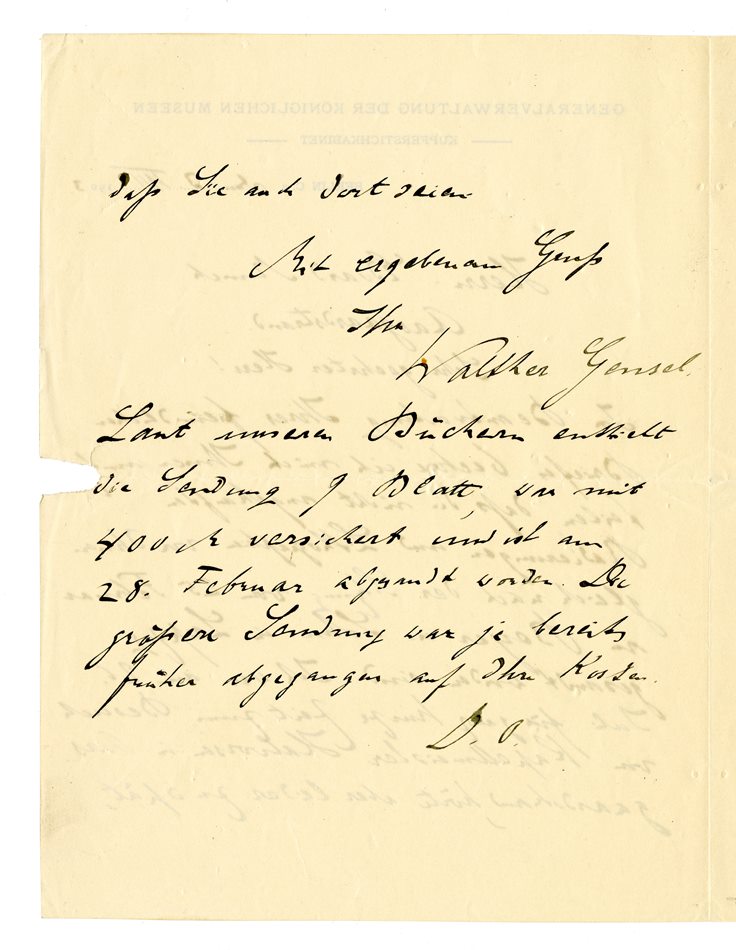 daß Sie auch dort seien
Mit ergebenem Gruß
Ihr
Walther Gensel.
Laut unseren Büchern enthielt
die Sendung 9 Blatt, war mit
400 M versichert und ist am
28. Februar abgesandt worden. Die
größere Sendung war ja bereits
früher abgegangen auf Ihre Kosten.
D. O.